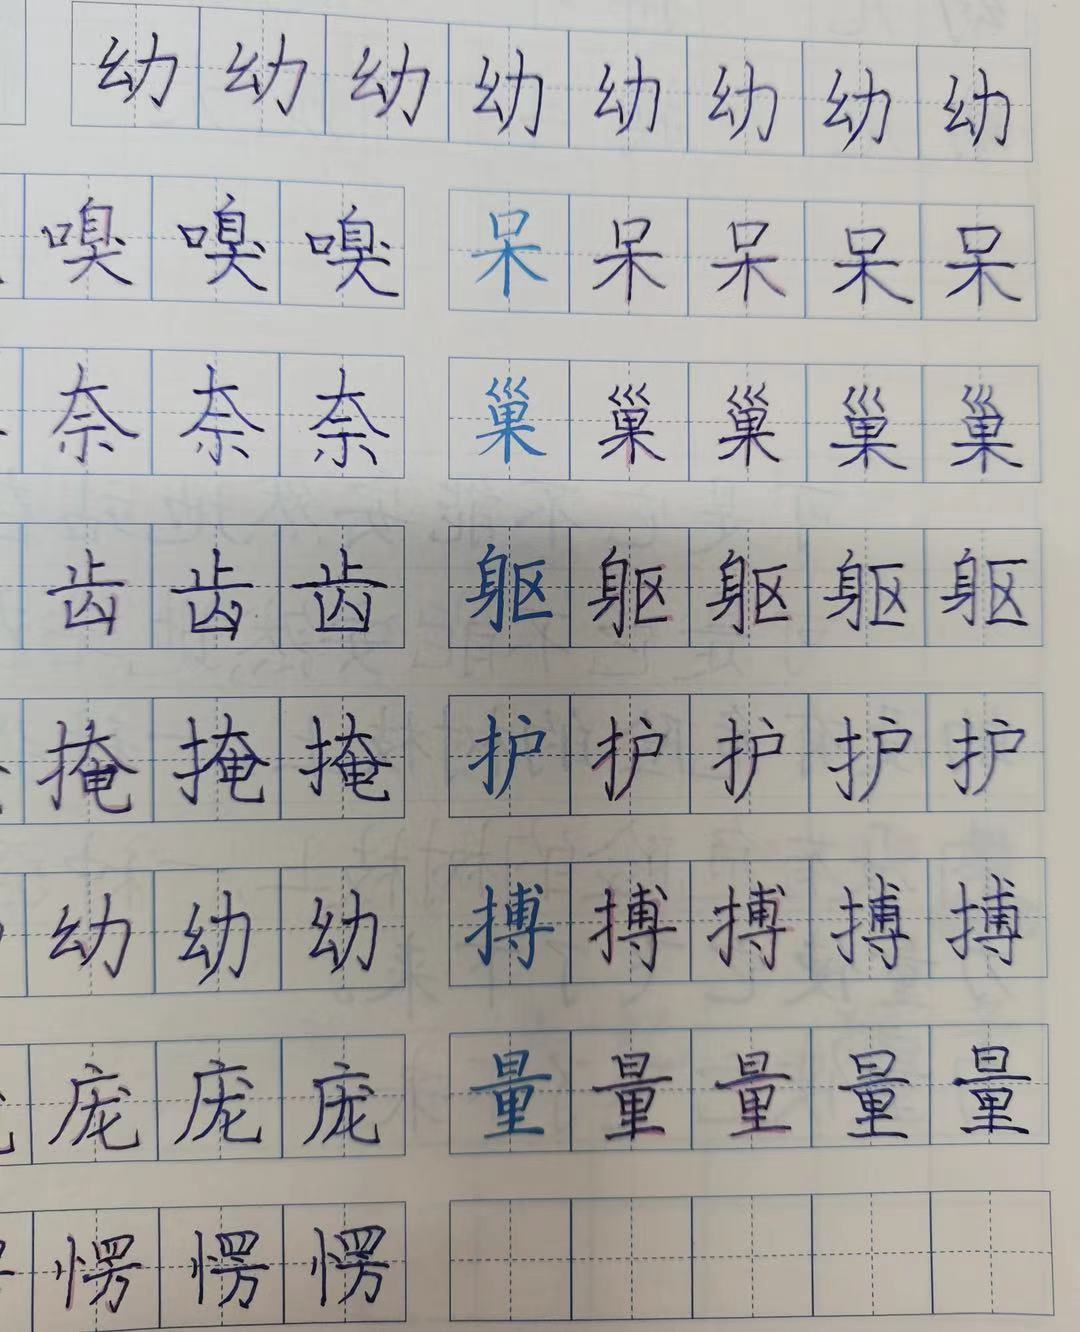 幼幼幼幼幼幼幼幼
嗅嗅嗅 呆呆呆呆呆
奈奈奈 巢巢巢巢巢
齿齿齿 躯躯躯躯躯
掩掩掩 护护护护护
幼幼幼 搏搏搏搏搏
庞庞庞 量量量量量
愣愣愣